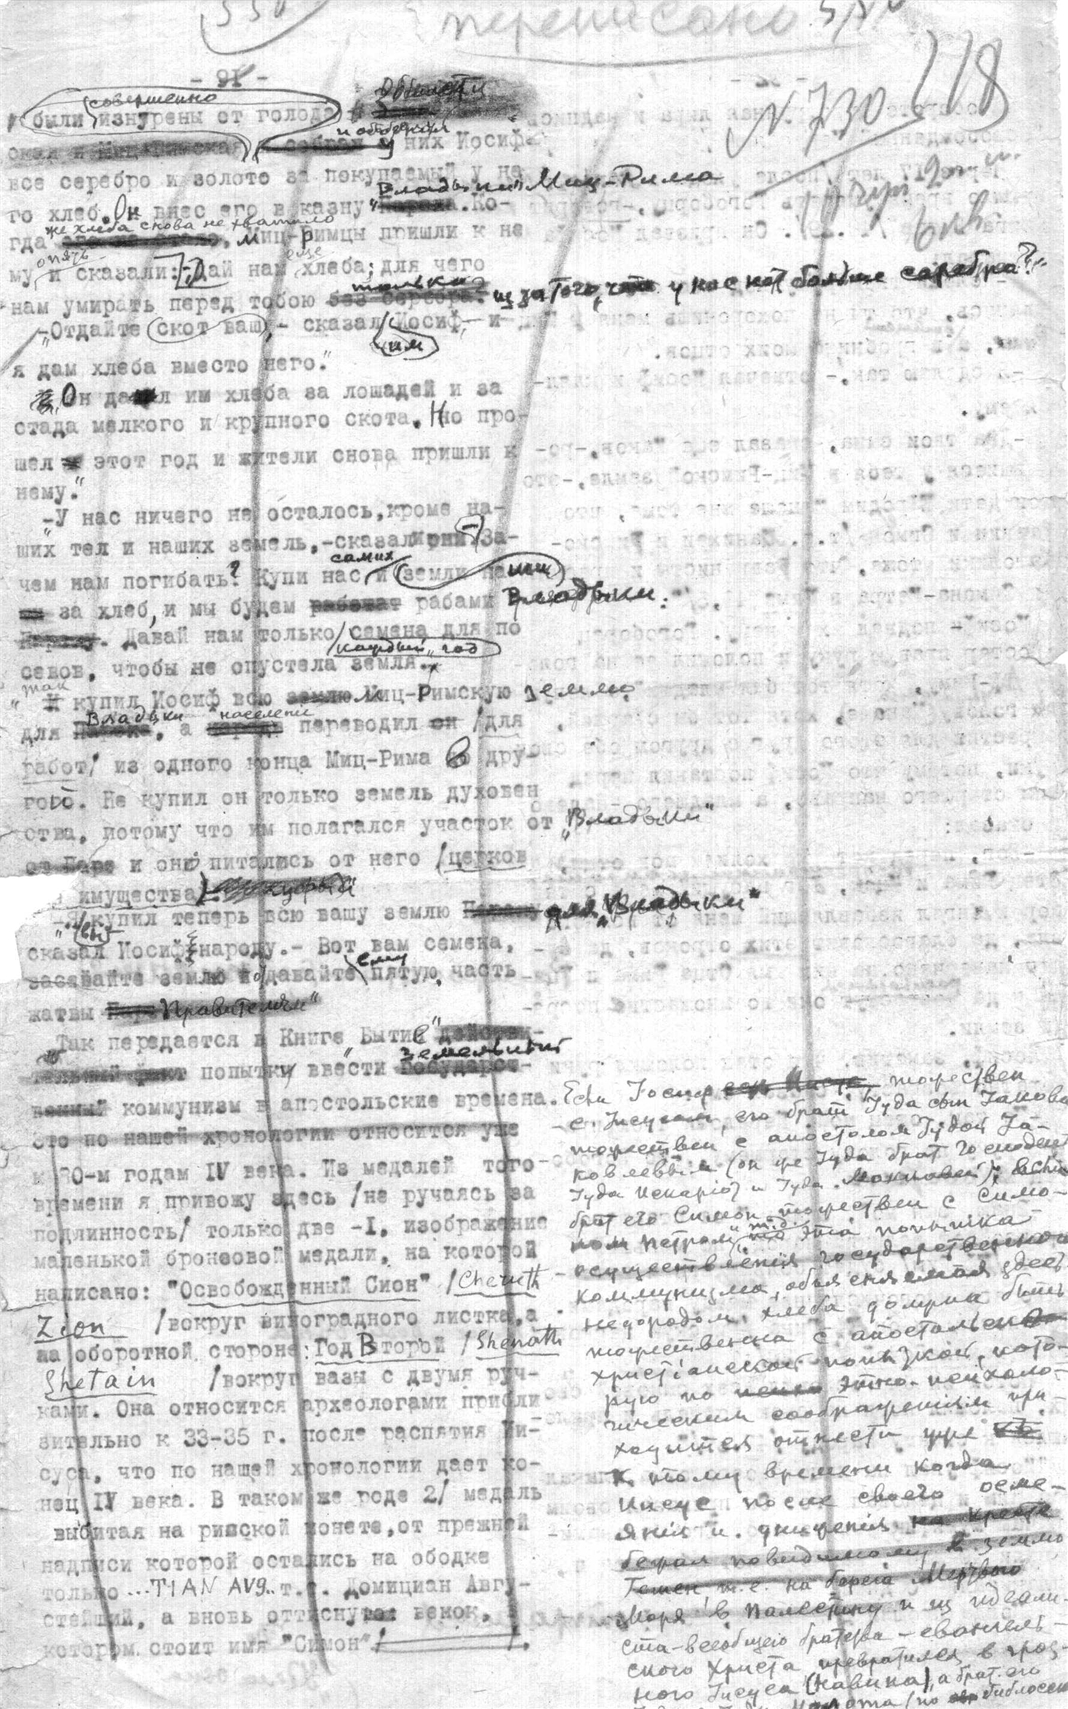 переписано
- 91 -
N 730
118
совершенно
области
были изнурены от голода
и Миц-Римская и собрал у них Иосиф
все серебро и золото за покупаемый у не
го хлеб. Он внес его в казну "Владыки" Миц-Рима. Ко-
гда же хлеба снова не хватило, Миц-Римцы пришли к не
му опять и сказали: -Дай нам еще хлеба; для чего
нам умирать перед тобою только из за того, что у нас нет больше серебра?"
-Отдайте скот ваш, - сказал им Иосиф, - и
я дам хлеба вместо него."
Он дал им хлеба за лошадей и за
стада мелкого и крупного скота. Но про-
шел этот год и жители снова пришли к
нему."
-У нас ничего не осталось, кроме на-
ших тел и наших земель, -сказали они.- За-
чем нам погибать? Купи нас самих и земли наши
за хлеб, и мы будем рабами Владыки.
Давай нам только семена для по
севов каждый год, чтобы не опустела земля."
"Так купил Иосиф всю Миц-Римскую землю
для Владыки, а население переводил /для
работ/ из одного конца Миц-Рима в дру-
гой. Не купил он только земель духовен
ства, потому что им полагался участок от "Владыки"
и они питались от него /церков
имущества/.
"-Я купил теперь всю вашу землю для "Владыки"
сказал Иосиф народу.- Вот вам семена,
засевайте землю и давайте ему пятую часть
жатвы Правителям"
Так передается в Книге Бытие
попытки ввести земельный
коммунизм в апостольские времена.
Это по нашей хронологии относится уже
к 80-м годам IV века. Из медалей того
времени я привожу здесь /не ручаясь за
подлинность/ только две -I, изображение
маленькой бронзовой медали, на которой
написано: "Освобожденный Сион" /Cheruth
Zion /вокруг виноградного листка, а
на оборотной стороне: Год Второй /Shenath
Shetain /вокруг вазы с двумя руч-
ками. Она относится археологами прибли
зительно к 33-35 г. после распятия Ии-
суса, что по нашей хронологии дает ко-
нец IV века. В таком же роде 2/ медаль
выбитая на римской монете, от прежней
надписи которой остались на ободке
только ...TIAN AVG.. т.е. Домициан Авгу-
стейший, а вновь оттиснут венок, в
котором стоит имя "Симон".
Если Иосиф тожествен
с Иисусом, его брат Иуда сын Иакова
тожествен с апостолом Иудой Иа-
ковлевым (он же Иуда брат Господень
Иуда Искаріот и Иуда Маккавей),
брат его Симон тожествен с Симо-
ном Петром, то эта попытка
осуществленія государственного
коммунизма, объясняемая здесь
недородом хлеба должна быть
тожественна с апостальско
христіанской попыткой, кото-
рую по этно-психоло-
гическим соображеніям при-
ходится отнести уже
к тому времени когда
Иисус после своего осме-
янія и униженія на кресте
бежал повидимому в землю
Гошен т.е. на берега Мертвого
Моря в Палестину и из идеали-
ста-всеобщего братства - евангель-
ского Христа превратился в гроз-
ного Іисуса (Навина), а брат его